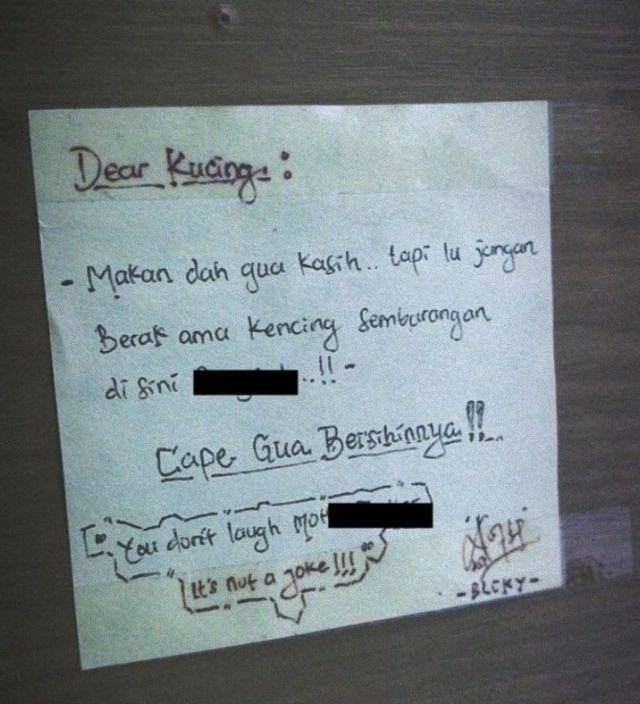 Dear Kucing :
- Makan dah gua kasih.. tapi lu jangan
Berak ama kencing sembarangan
di sini ..!! -
Cape Gua Bersihinnya !!
You don't laugh Mot
It's not a joke !!!
- BLCKY -